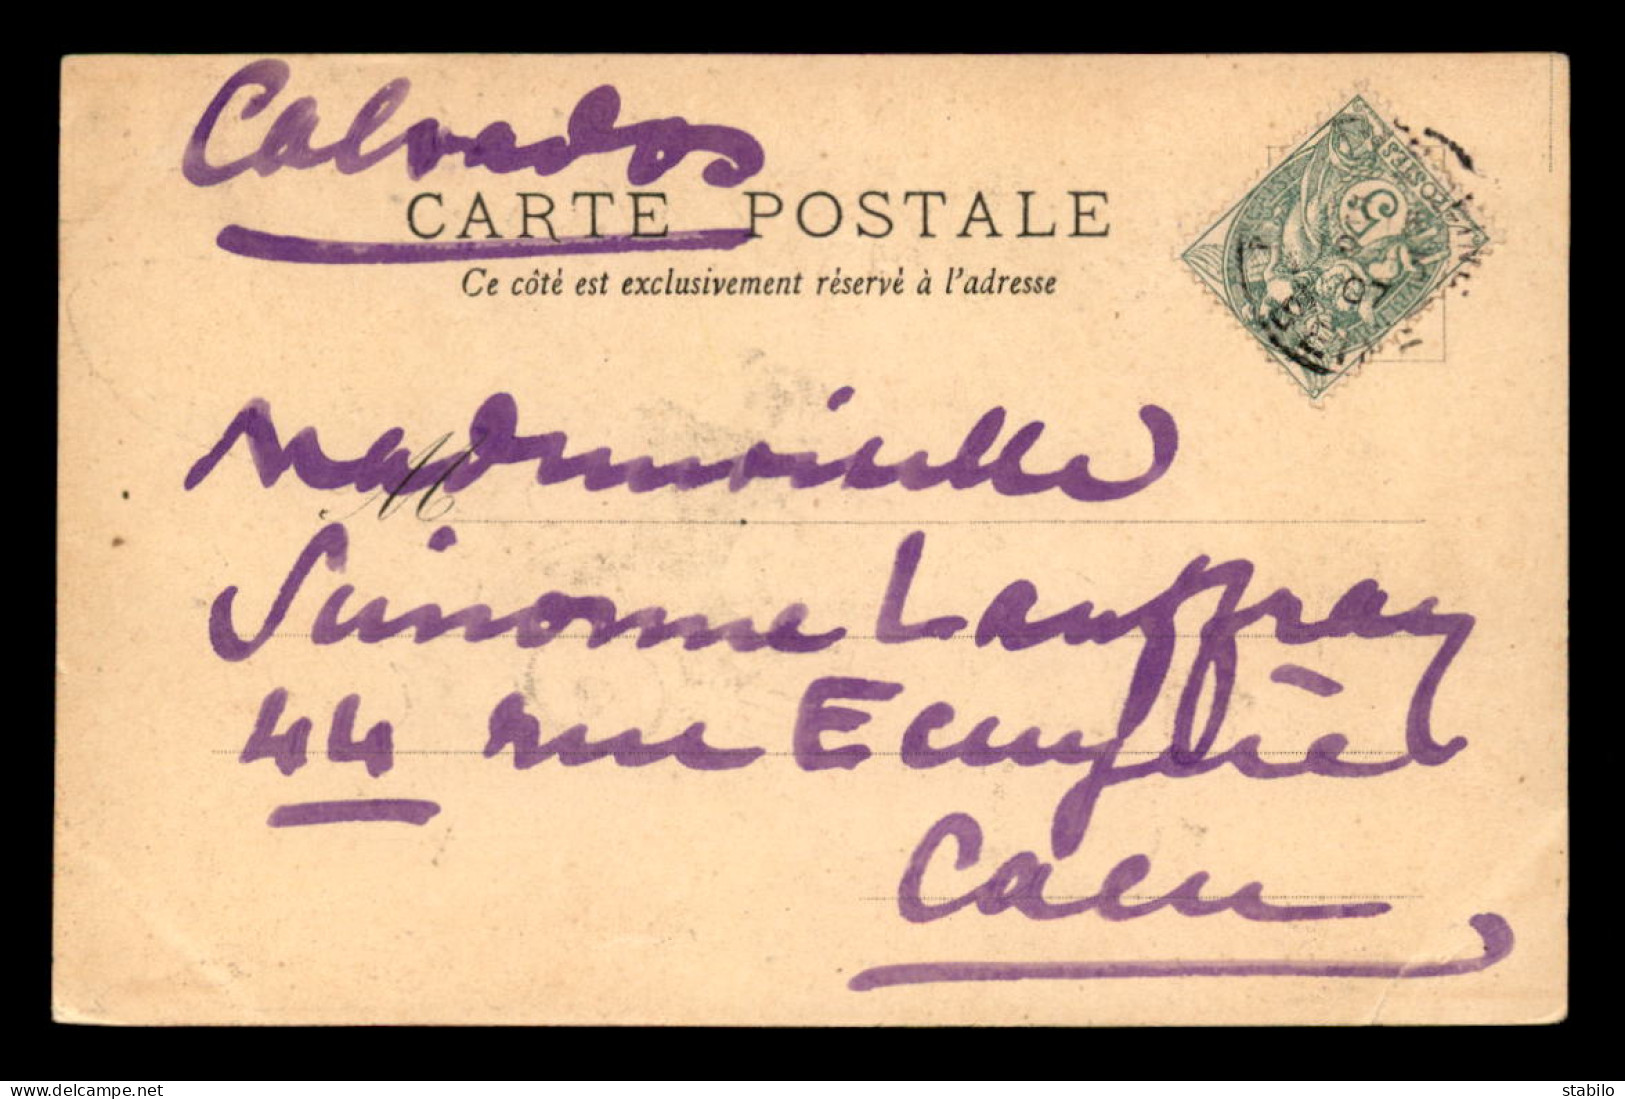 Calvados
CARTE POSTALE
Ce côté est exclusivement réservé à l'adresse
POSTES
5
Mademoiselle
M
Simonne Lauffray
44 rue Ecuyère
Caen
www.delcampe.net
stabilo